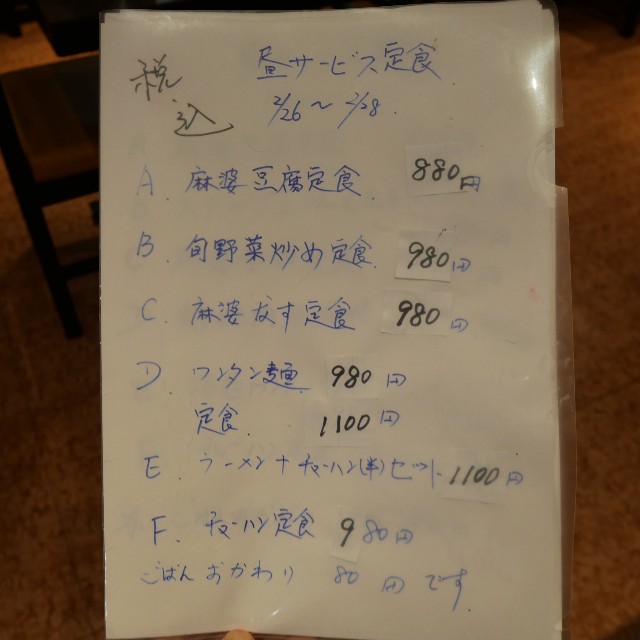 税込
昼サービス定食
2/26～2/28.
A. 麻婆豆腐定食. 880円
B. 旬野菜炒め定食. 980円
C. 麻婆なす定食 980円
D. ワンタン麺 980円
定食. 1100円
E. ラーメン+チャーハン(半)セット 1100円
F. チャーハン定食 980円
ごはんおかわり 80円です.